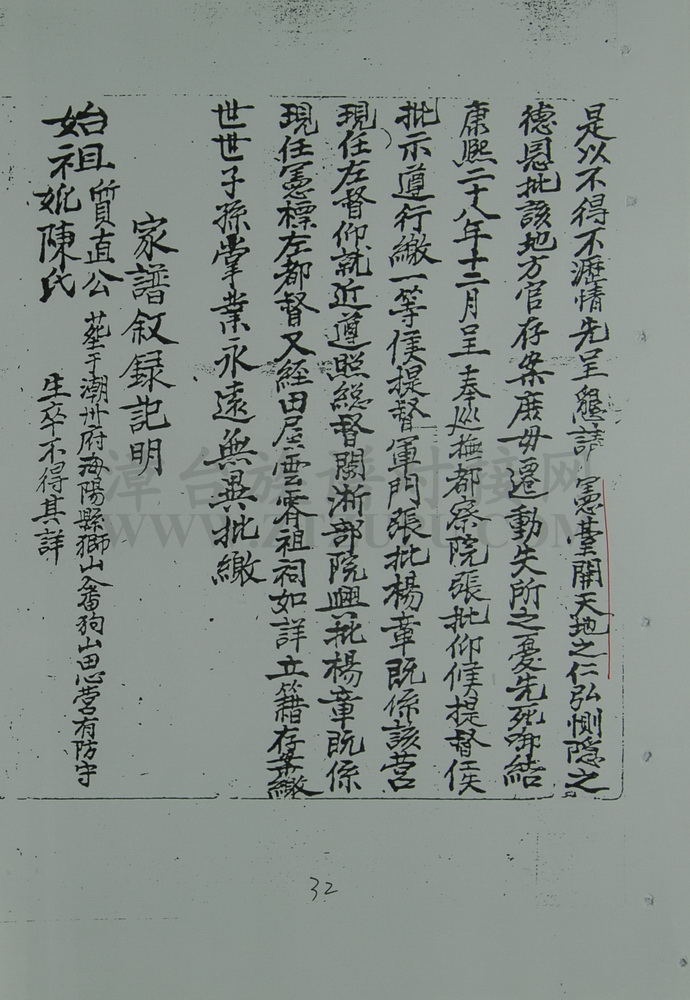 是以不得不瀝情先呈懇請 憲臺開天地之仁弘惻隐之
德恩批該地方官存案庻毋遷動失所之憂先死啣結
康熙二十八年十二月呈 奉巡撫都察院張批仰候提督侯
批示遵行繳一等侯提督軍門張批楊章既係該营
現任左督仰就近遵照総督閩淅部院興批楊章既係
現任憲標左都督又經田屋雲霄祖祠如詳立籍存案繳
世世子孫掌業永遠無異批繳
家譜叙録記明
始祖質直公 塟于潮州府海陽縣獅山入畨狗山田心营有防守
妣陳氏 生卒不得其詳
漳台族谱对接网
32